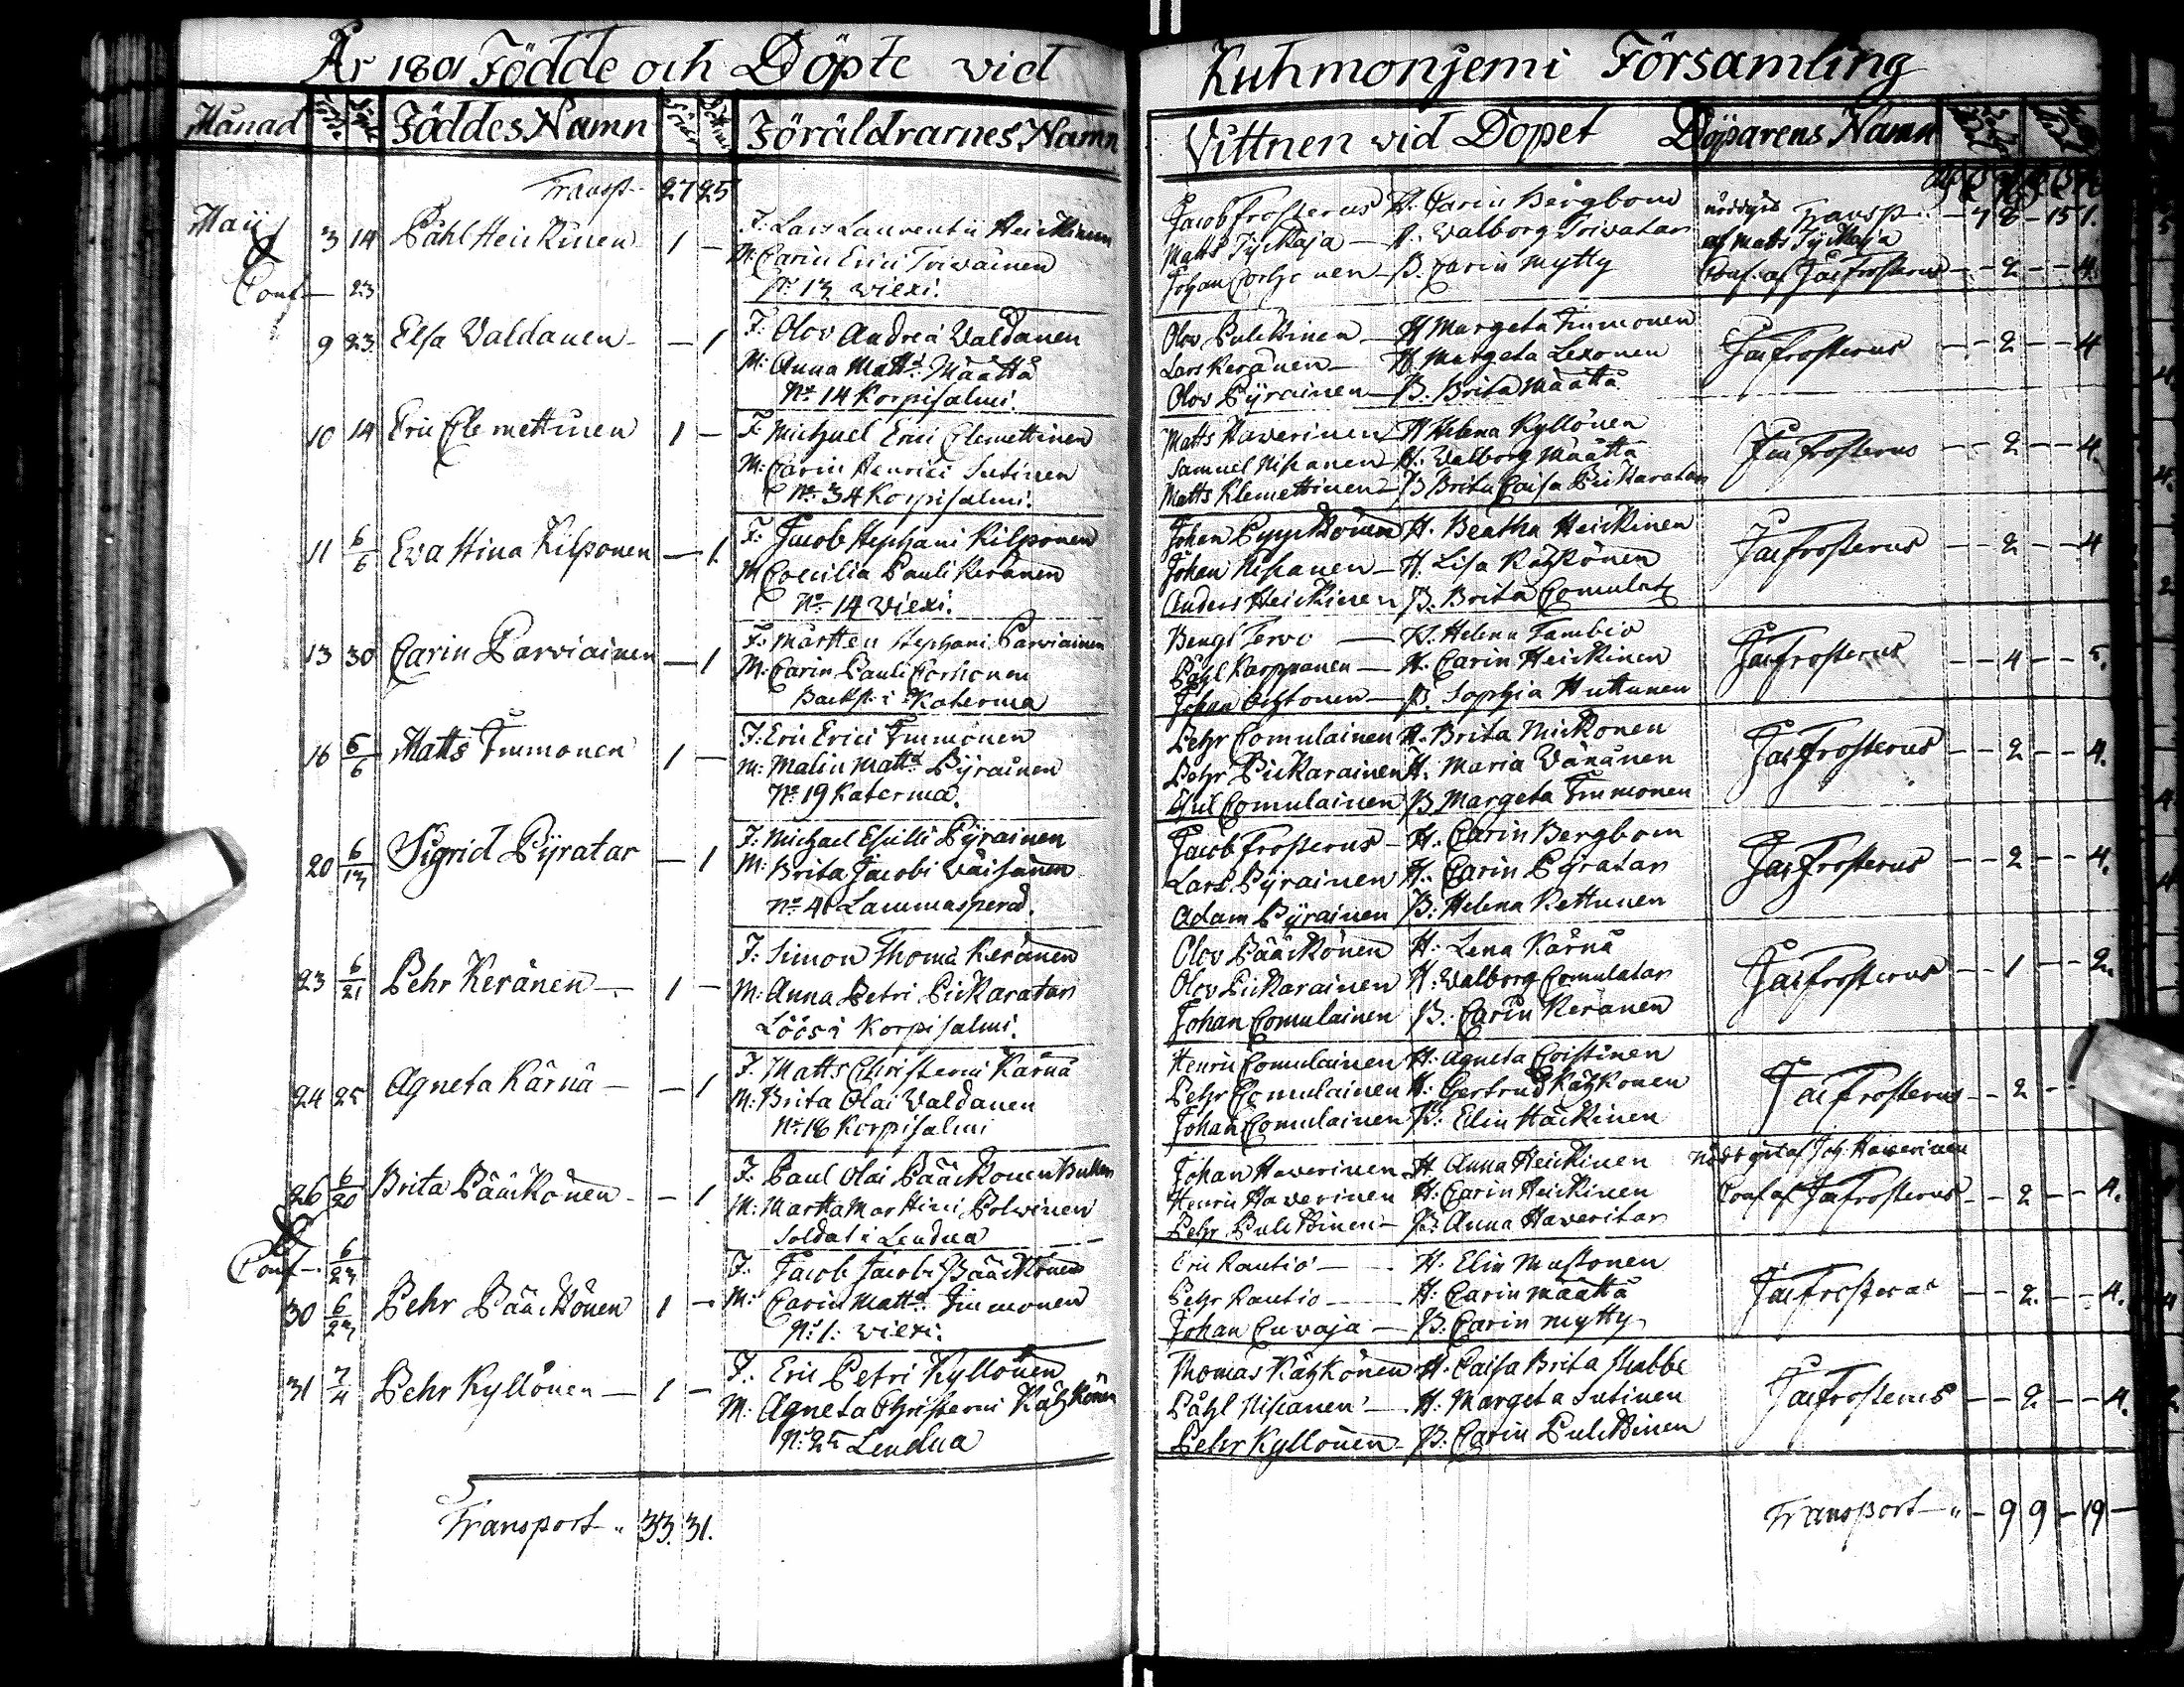 År 1801 Födde och Döpte vid
Månad Födde Döpte Föddes Namn Söner Döttrar Föräldrarnes Namn
Transp. 27 25
Maii 3 14 Påhl Heickinen 1 - F: Lars Laurentii Heickinen
M: Carin Erici Toivainen
Conf - 23 No 13 Wiexi.
9 23 Elsa Waldanen - - 1 F: Olov Andreæ Waldanen
M: Anna Matt. Määttä
No 14 Korpisalmi.
10 14 Eric Clemettinen 1 - F: Michael Erici Clemettinen
M: Carin Henrici Sutinen
No 34 Korpisalmi.
11 6/6 Eva Stina Kilponen - 1 F: Jacob Stephani Kilponen
M: Coecilia Pauli Keränen
No 14 Wiexi.
13 30 Carin Parviainen - 1 F: Mårten Stephani Parviainen
M: Carin Pauli Korhonen
Backst. i Katerma
16 6/6 Matts Timmonen 1 - F: Eric Erici Timmonen
M: Malin Matt. Pyrainen
No 19 Katerma.
20 6/13 Sigrid Pyratar - 1 F: Michael Eskilli Pyrainen
M: Brita Jacobi Wäisänen
No 41 Lammasperä.
23 6/21 Pehr Keränen - 1 - F: Simon Thomæ Keränen
M: Anna Petri Pickaratar
Löös i Korpisalmi.
24 25 Agneta Kärnä - - 1 F: Matts Christerni Kärnä
M: Brita Olai Waldanen
No 18 Korpisalmi
26 6/20 Brita Pääckönen - - 1 F: Paul Olai Pääckönen
M: Martha Martini Polvinen
Soldat i Lendua
Conf - 6/23
30 6/23 Pehr Pääckönen 1 - F: Jacob Jacobi Pääckönen
M: Carin Matt. Timmonen
No 1: Wiexi:
31 7/4 Pehr Kyllönen - 1 - F: Eric Petri Kyllönen
M: Agneta Christerni Kähkönen
No 25 Lendua
Transport 33. 31.
Kuhmonjemi Församling
Vittnen vid Dopet Döparens Namn
Jacob Frosterus H. Carin Bergbom nöddöpt Transp. - 7 8 - 15 1.
Matts Tyckäjä - H. Walborg Toivatar af Matts Tyckäjä
Johan Korhonen - P. Carin Mytty Conf. af Jac Frosterus - - 2 - - 4.
Olov Pulckinen - H Margeta Timmonen
Lars Keränen - H Margeta Lexonen Jac Frosterus - - 2 - - 4
Olov Pyrainen - P. Brita Määttä
Matts Haverinen H Helena Kyllönen
Samuel Niskanen H. Walborg Määttä Jac Frosterus - - 2 - - 4.
Matts Klemettinen - P Brita Caisa Pickaratar
Johan Pyyckönen H. Beatha Heickinen
Johan Niskanen - H. Lisa Kähkönen Jac Frosterus - - 2 - - 4
Anders Heickinen P. Brita Comulat.
Bengt Tervo - H. Helena Tambio
Påhl Karppanen - H. Carin Heickinen Jac Frosterus - - 4 - - 5.
Johan - P. Sophia Huttunen
Pehr Comulainen H. Brita Mickonen
Pehr Pickarainen H. Maria Wänänen Jac Frosterus - - 2 - - 4.
Comulainen P Margeta Timmonen
Jacob Frosterus - H. Carin Bergbom
Lars Pyrainen H. Carin Pyratar Jac Frosterus - - 2 - - 4.
Adam Pyrainen P. Helena Kettunen
Olov Pääckönen H: Lena Kärnä
Olov Pickarainen H: Walborg Comulatar Jac Frosterus - - 1 - - 2.
Johan Comulainen P. Carin Keränen
Henric Comulainen H: Agneta Coistinen
Pehr Comulainen H: Gertrud Kähkonen Jac Frosterus - - 2 -
Johan Comulainen P: Elin Häickinen
Johan Haverinen H Anna Heickinen Nöddöpt af Joh Haverinen
Henric Haverinen H: Carin Heickinen Conf af Jac Frosterus - - 2 - - 4.
Pehr Pulckinen - P: Anna Haveritar
Eric Rautio - H. Elin Mustonen
Pehr Rautio - H: Carin Määttä Jac Frosterus - - 2. - - 4.
Johan Cuvaja - P: Carin Mytty
Thomas Kähkönen H. Caisa Brita Stubbe
Påhl Niskanen - H. Margeta Sutinen Jac Frosterus - - 2 - - 4.
Pehr Kyllönen - P: Carin Pulckinen
Transport - " - 9 9 - 19 -